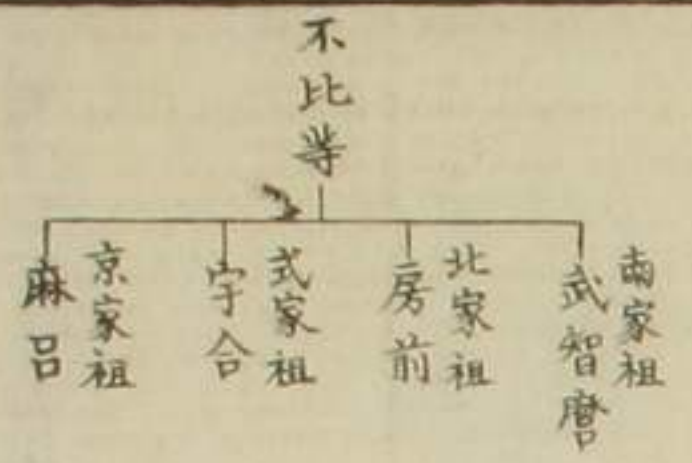 不比等
南家祖
武智麿
北家祖
房前
式家祖
宇合
京家祖
麻呂